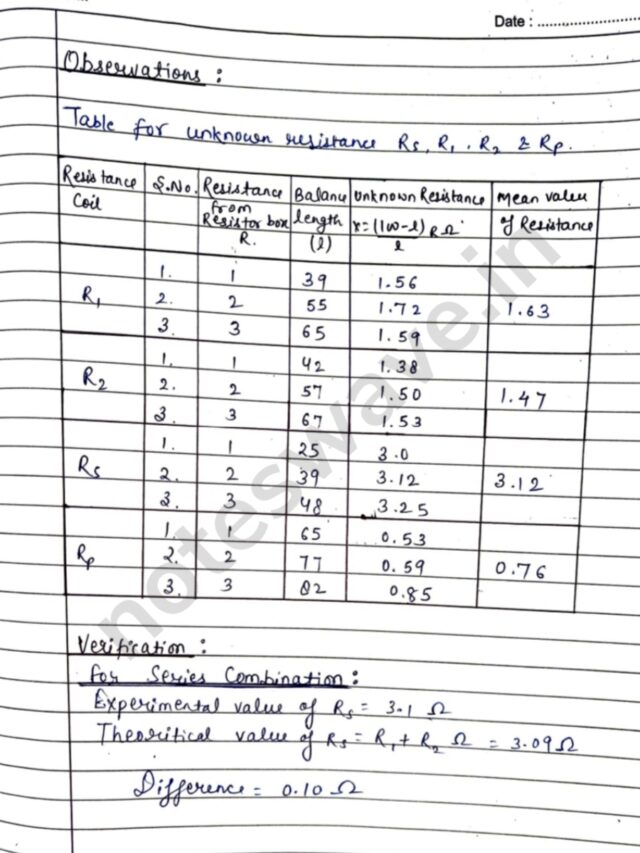 Date : ........................
Observations :
Table for unknown resistance Rs, R1, R2 & Rp.
Resistance Coil | S.No. | Resistance from Resistor box R. | Balance length (l) | Unknown Resistance x = (100-l)/l R Ω | Mean value of Resistance
R1 | 1. | 1 | 39 | 1.56
2. | 2 | 55 | 1.72 | 1.63
3. | 3 | 65 | 1.59
R2 | 1. | 1 | 42 | 1.38
2. | 2 | 57 | 1.50 | 1.47
3. | 3 | 67 | 1.53
Rs | 1. | 1 | 25 | 3.0
2. | 2 | 39 | 3.12 | 3.12
3. | 3 | 48 | 3.25
Rp | 1. | 1 | 65 | 0.53
2. | 2 | 77 | 0.59 | 0.76
3. | 3 | 82 | 0.85
Verification :
For Series Combination :
Experimental value of Rs = 3.1 Ω
Theoritical value of Rs = R1 + R2 Ω = 3.09 Ω
Difference = 0.10 Ω
noteswave.in